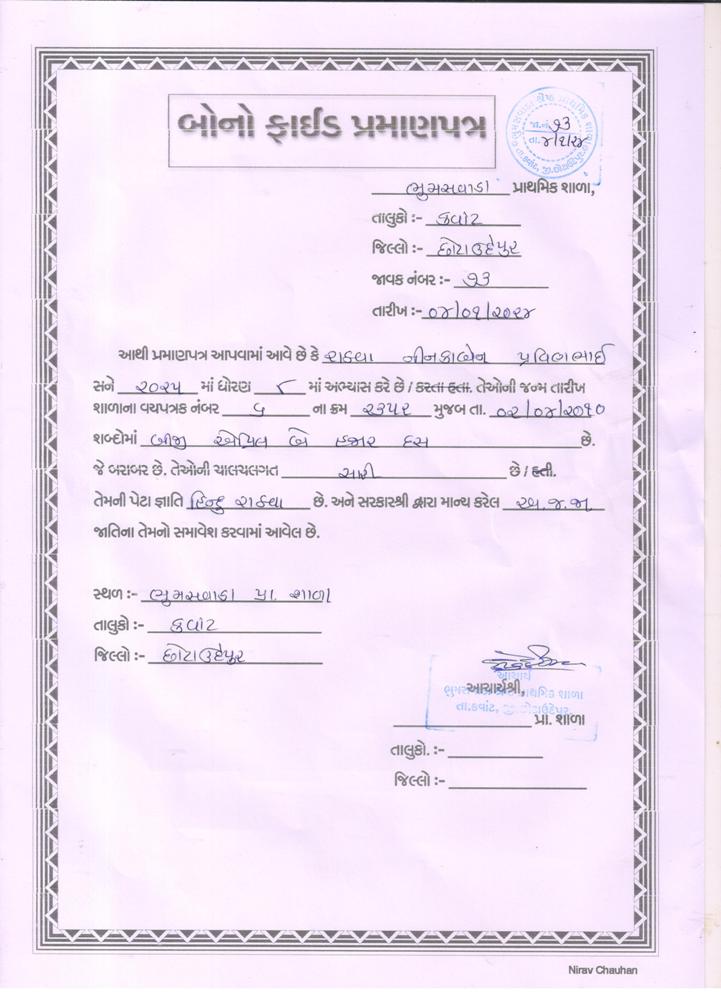 બોનો ફાઈડ પ્રમાણપત્ર
જા.નં. ૭૩
તા. ૪/૧/૨૪
ભુમસવાડા પ્રાથમિક શાળા,
તાલુકો :- કવાંટ
જિલ્લો :- છોટાઉદેપુર
જાવક નંબર :- ૭૩
તારીખ :- ૦૪/૦૧/૨૦૨૪
આથી પ્રમાણપત્ર આપવામાં આવે છે કે રાઠવા પ્રવિણભાઈ
સને માં ધોરણ ૮ માં અભ્યાસ કરે છે / કરતા હતા. તેઓની જન્મ તારીખ
શાળાના વયપત્રક નંબર ૫ ના ક્રમ ૨૩૫૨ મુજબ તા. ૦૨/૦૪/૨૦૧૦
શબ્દોમાં બીજી એપ્રિલ બે હજાર દસ છે.
જે બરાબર છે. તેઓની ચાલચલગત સારી છે / હતી.
તેમની પેટા જ્ઞાતિ હિન્દુ રાઠવા છે. અને સરકારશ્રી દ્વારા માન્ય કરેલ અ.જ.જા.
જાતિના તેમનો સમાવેશ કરવામાં આવેલ છે.
સ્થળ :- ભુમસવાડા પ્રા. શાળા
તાલુકો :- કવાંટ
જિલ્લો :- છોટાઉદેપુર
આચાર્ય
આચાર્યશ્રી,
પ્રાથમિક શાળા
તા.કવાંટ, જી.છોટાઉદેપુર
પ્રા. શાળા
તાલુકો. :-
જિલ્લો :-
Nirav Chauhan